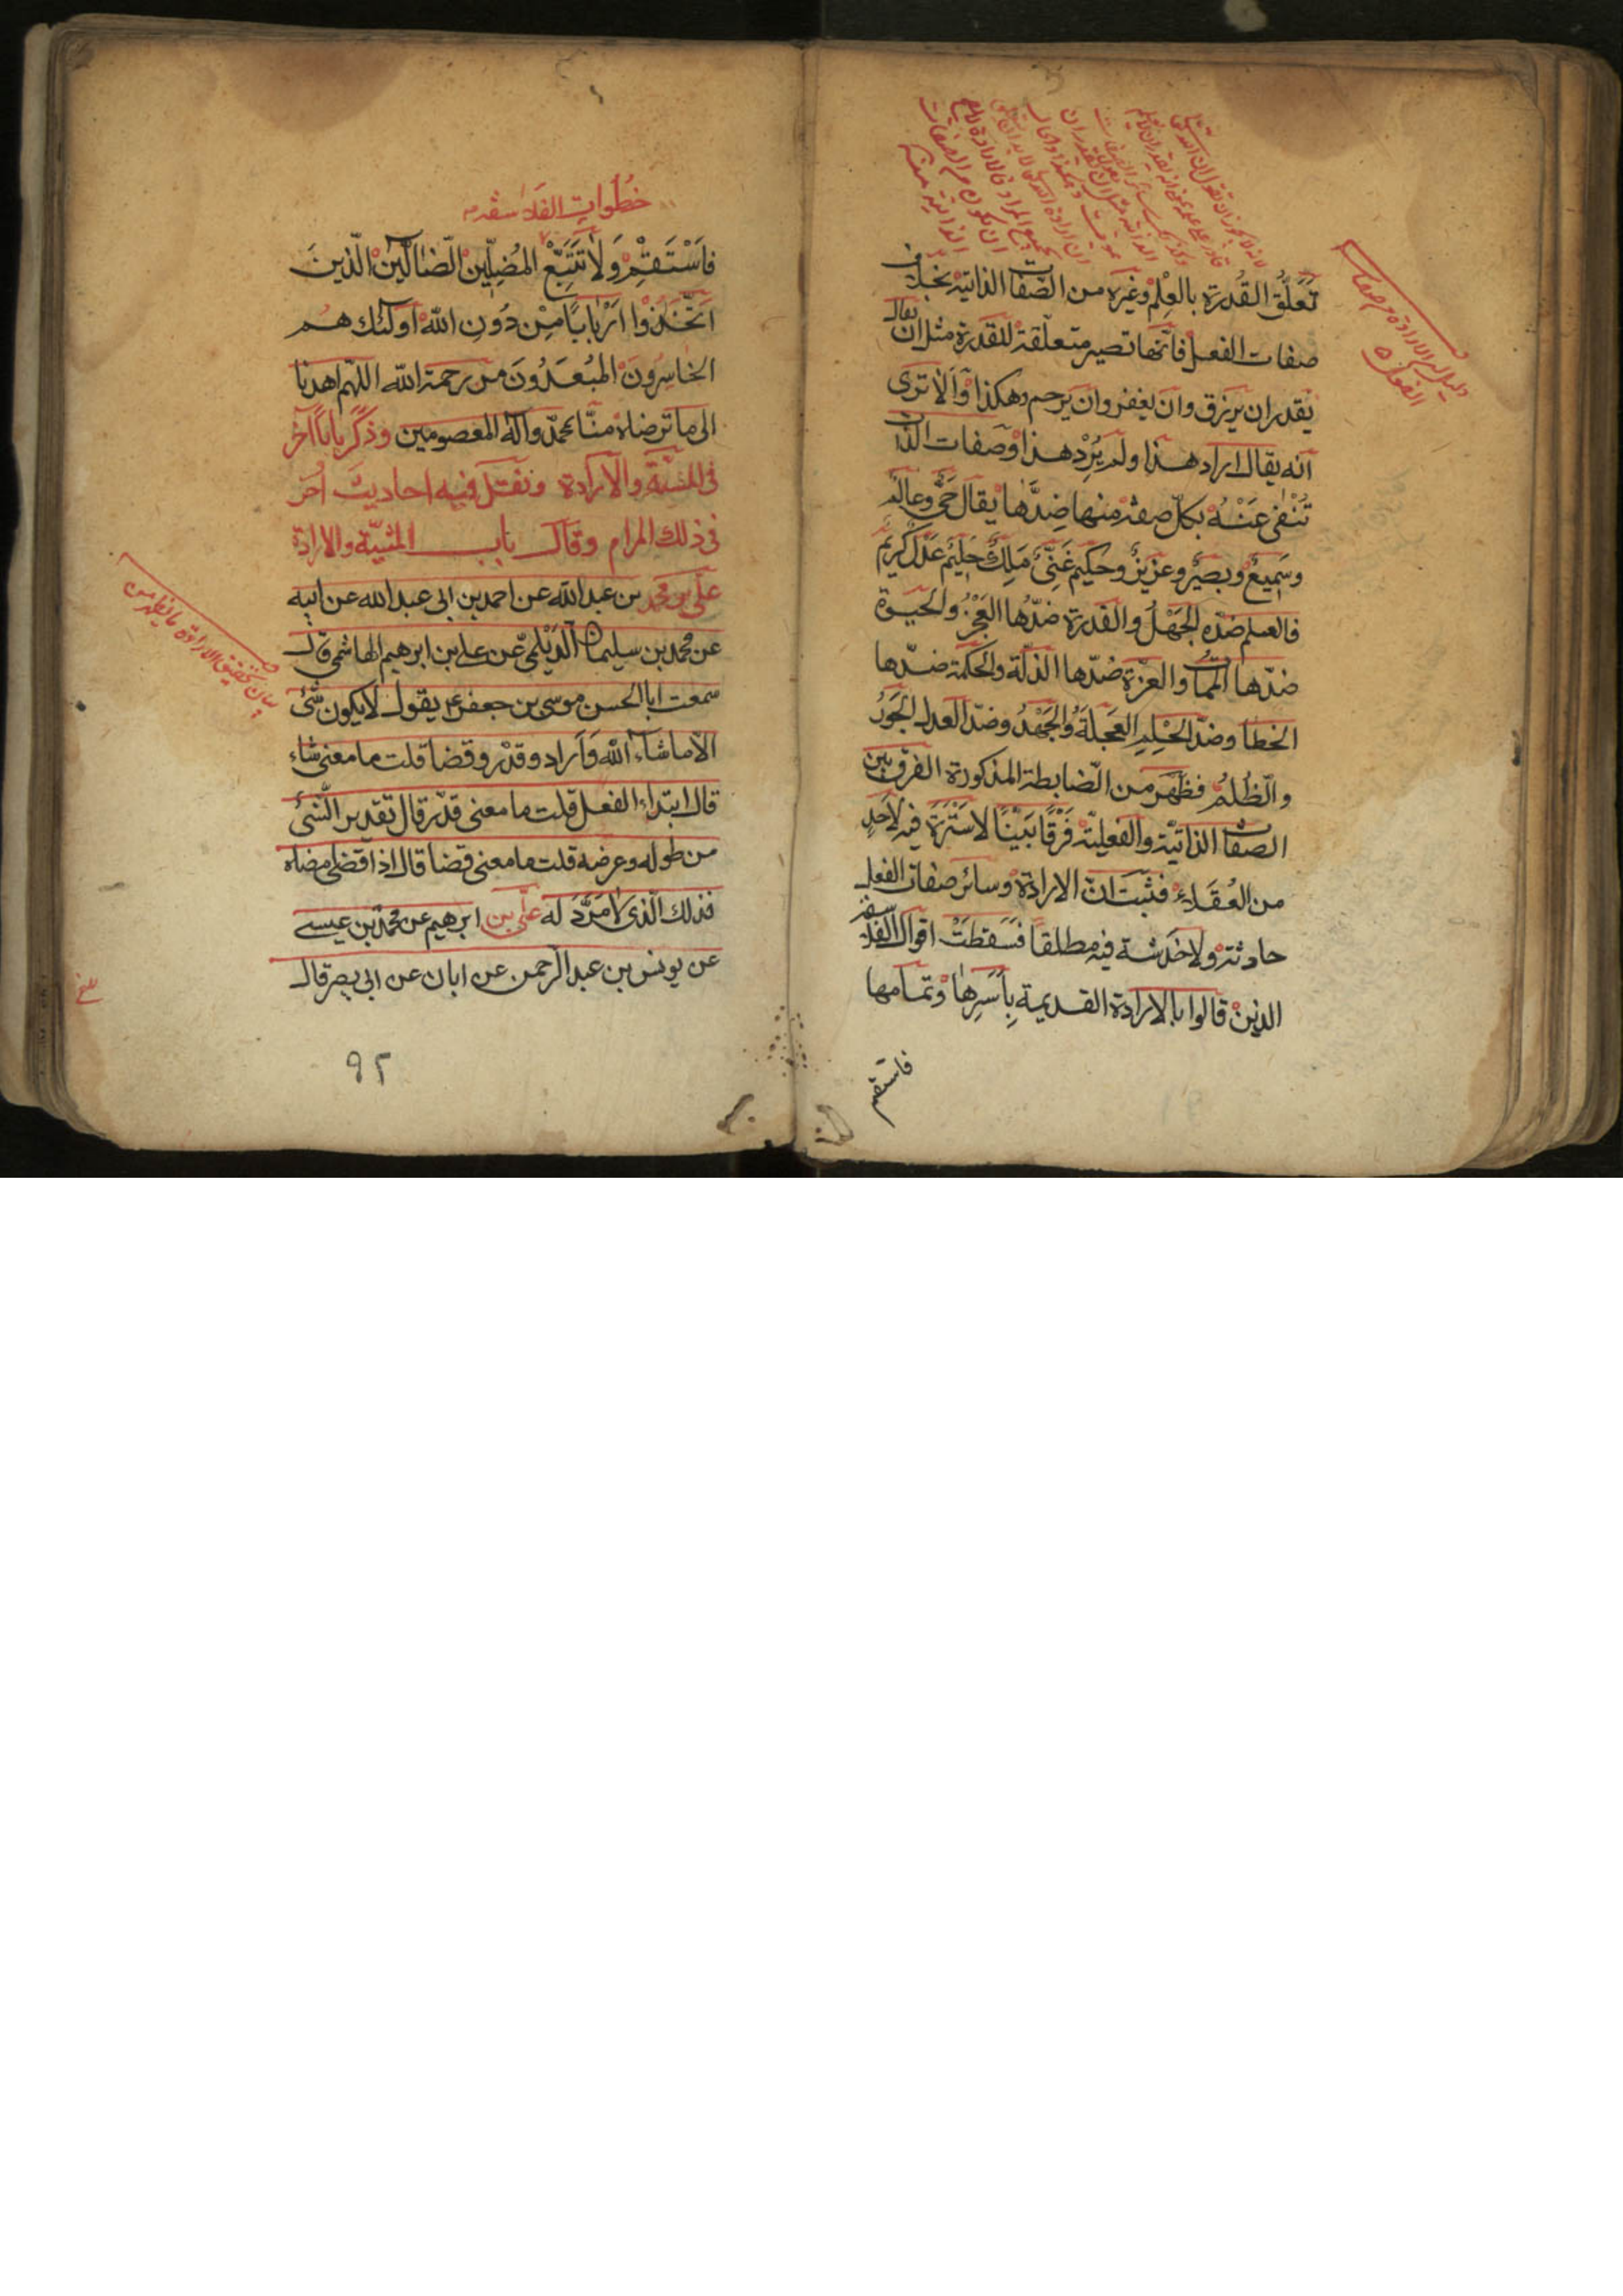 تَعَلُّق القُدرة بالعِلْم وغيره من الصّفات الذاتيّة بخلاف
صفات الفعل فانّها تصير متعلّقة للقدرة مثل ان يقال
يقدر ان يرزق وان يغفر وان يرحم وهكذا وَالا ترى
انّه يقال اراد هذا ولم يُرِدْ هذا وصفات الذات
تُنْفٰى عَنْهُ بكلّ صفة منها ضِدَّها يقال حَىٌّ وعالِمٌ
وسَمِيعٌ وبَصيرٌ وعزيزٌ وحكيم غَنِىٌّ مَلِكٌ حَلِيمٌ عَدْلٌ كَرِيمٌ
فالعلم ضدّه الجَهْلُ والقدرة ضدّها العَجْزُ والحَيوة
ضدّها المَمات والعزّة ضدّها الذلّة والحكمة ضدّها
الخطأ وضدّ الحِلْمِ العَجَلَةُ والجَهْدُ وضدّ العدل الجَوْرُ
والظُلمُ فظَهَرَ من الضّابطة المذكورة الفرق بين
الصفات الذاتيّة والفعليّة فَرْقًا بَيِّنًا لا سُتْرَةَ فيه لأحدٍ
من العُقَلاء فثبت انّ الارادة وسائر صفات الفعل
حادثة ولا خدشة فيه مطلقاً فسَقَطَتْ اقوال الفلاسفة
الذين قالوا بالارادة القديمة بِأَسْرِها وتمامها
فاستقم
خُطُواتِ الفلاسفة
فَاسْتَقِمْ وَلا تَتَّبِعْ المُضِلّينَ الضّالّينَ الّذينَ
اتّخَذُوا اَرْبابًا مِنْ دُونِ اللّٰه اولٰئك هم
الخاسِرُونَ المُبْعَدُونَ من رحمة اللّٰه اللّهمّ اهدنا
الى ما ترضاه منّا بمحمّد وآله المعصومين وذكر باباً آخر
فى المشيّة والارادة ونقل فيه احاديث اُخر
فى ذلك المرام وقال باب المشيّة والارادة
علىّ بن محمد بن عبد اللّٰه عن احمد بن ابى عبد اللّٰه عن ابيه
عن محمد بن سليمان الدَيْلَمىّ عن على بن ابرهيم الهاشمى قال
سمعت ابا الحسن موسى بن جعفر ع يقول لا يكون شىء
الّا ما شاء اللّٰه وَاَراد وقدّر وقضا قلت ما معنى شاء
قال ابتداء الفعل قلت ما معنى قدّر قال تقدير الشّىء
من طوله وعرضه قلت ما معنى قضا قال اذا قضى امضاه
فذلك الّذى لا مَرَدَّ له علىّ بن ابرهيم عن محمد بن عيسى
عن يونس بن عبد الرحمن عن ابان عن ابى بصير قال
٩٢